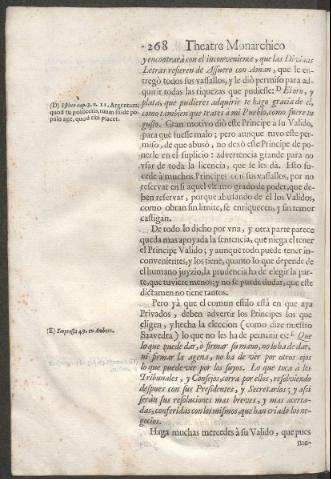 268 Theatro Monarchico
y encontrarà con el inconveniente, que las Divinas
Letras refieren de Assuero con Aman, que le en-
tregò todos sus vassallos, y le diò permiso para ad-
quirir todas las riquezas que pudiesse: D El oro, y
plata, que pudieres adquirir te hago gracia de el,
como tambien que trates a mi Pueblo, como fuere tu
gusto. Gran motivo diò este Principe à su Valido,
para què fuesse malo; pero aunque tuvo este per-
miso, de que abusò, no dexò este Principe de po-
nerle en el suplicio: advertencia grande para no
usar de toda la licencia, que se les dà. Esto su-
cede à muchos Principes con sus vassallos, por no
reservar en si aquel vltimo grado de poder, que de-
ben reservar, porque abusando de èl los Validos,
como obran sin limite, se enriquecen, y sin temor
castigan.
De todo lo dicho por vna, y otra parte parece
queda mas apoyada la sentencia, què niega el tener
el Principe Valido; y aunque todo puede tener in-
convenientes, y los tiene, quanto lo que depende de
el humano juyzio, la prudencia ha de elegir la par-
te, que tuviere menos; y no se puede dudar, que este
dictamen no tiene tantos.
Pero yà que el comun estilo està en que aya
Privados, deben advertir los Principes los que
eligen, y hecha la eleccion (como dize nuestro
Saavedra) lo que no les ha de permitir es: E Que
lo que puede dar, ò firmar su mano, no lo ha de dar,
ni firmar la agena, no ha de vèr por otros ojos
lo que puede vèr por los suyos. Lo que toca à los
Tribunales, y Consejos, corra por ellos, resolviendo
despues con sus Presidentes, y Secretarios; y assi
seràn sus resoluciones mas breves, y mas acerta-
das, conferidas con los mismos, que han criado los ne-
gocios.
Haga muchas mercedes à su Valido, que pues
(D) Esther cap. 3. v. 11. Argentum,
quod tu polliceris, tuum sit: de po-
pulo age, quod tibi placet.
(E) Empressa 49. in Ambers.